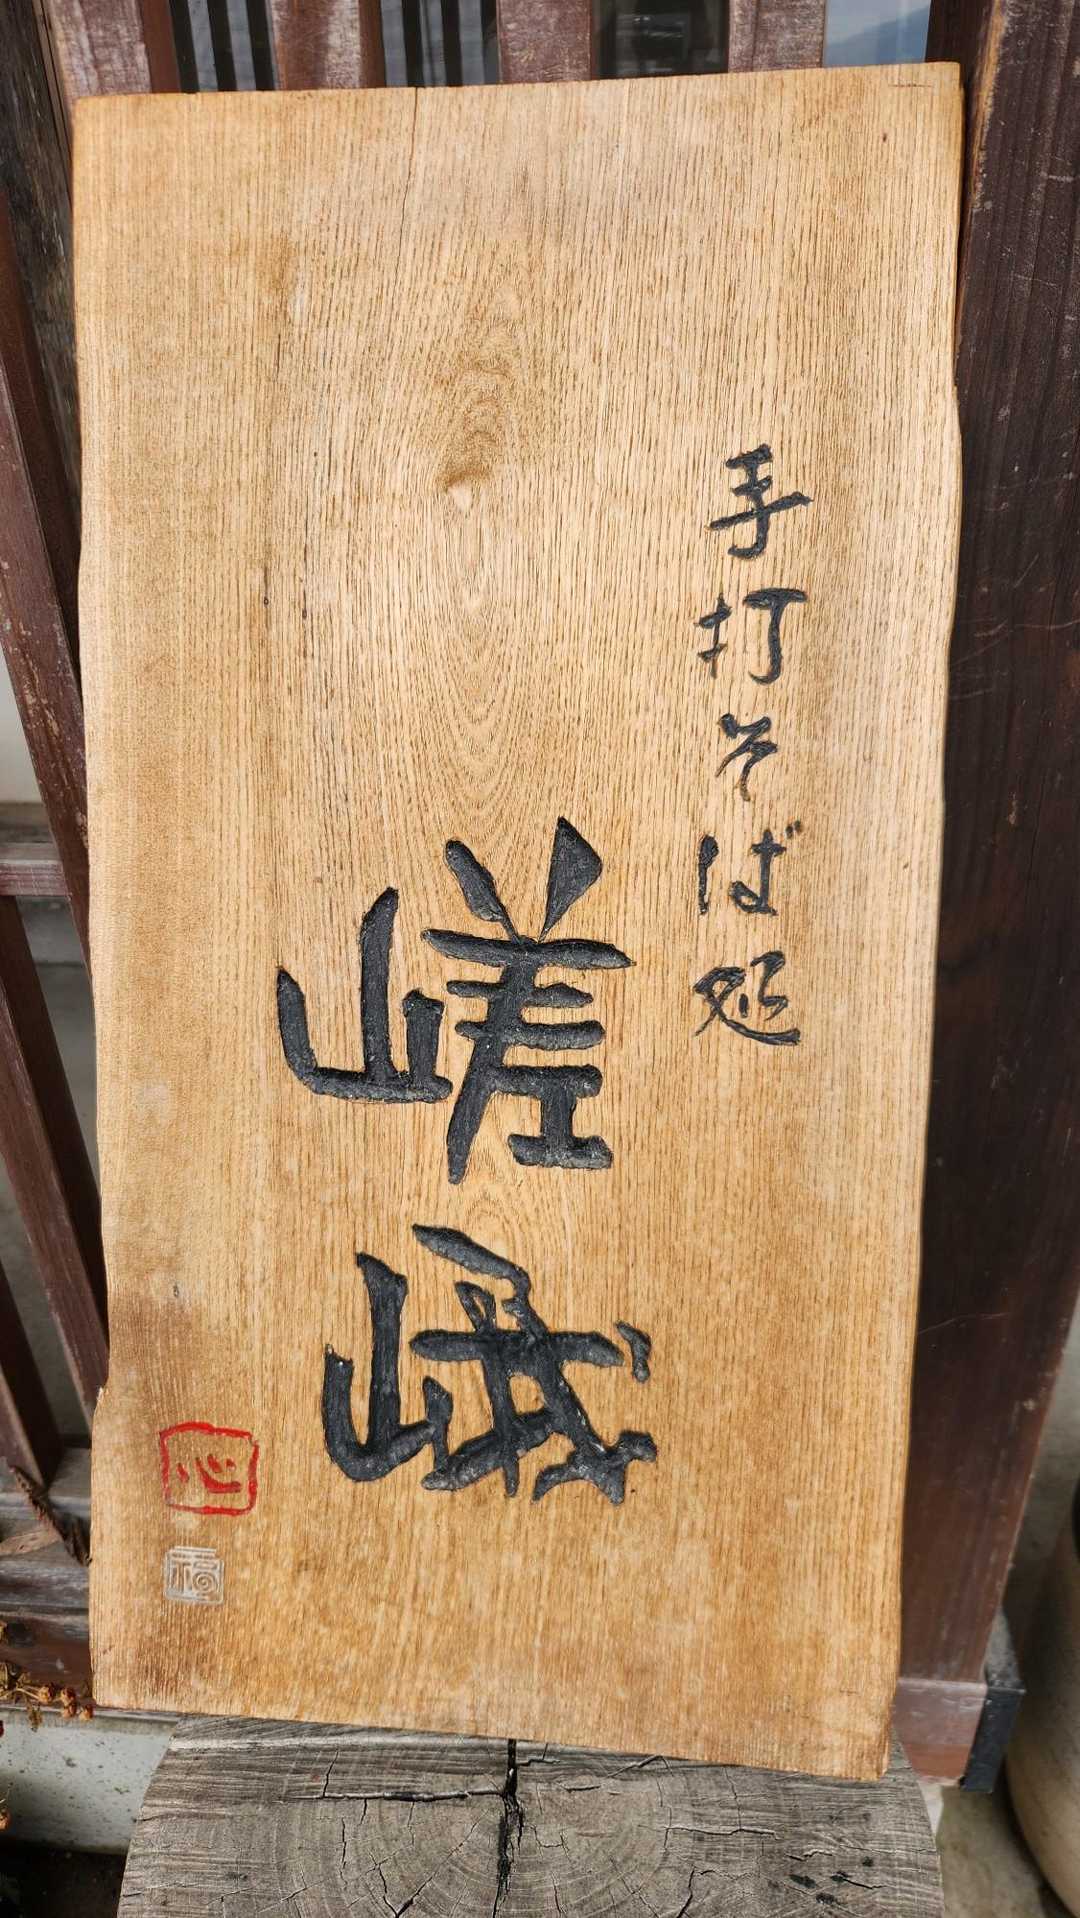 手打そば処
嵯峨
心
福